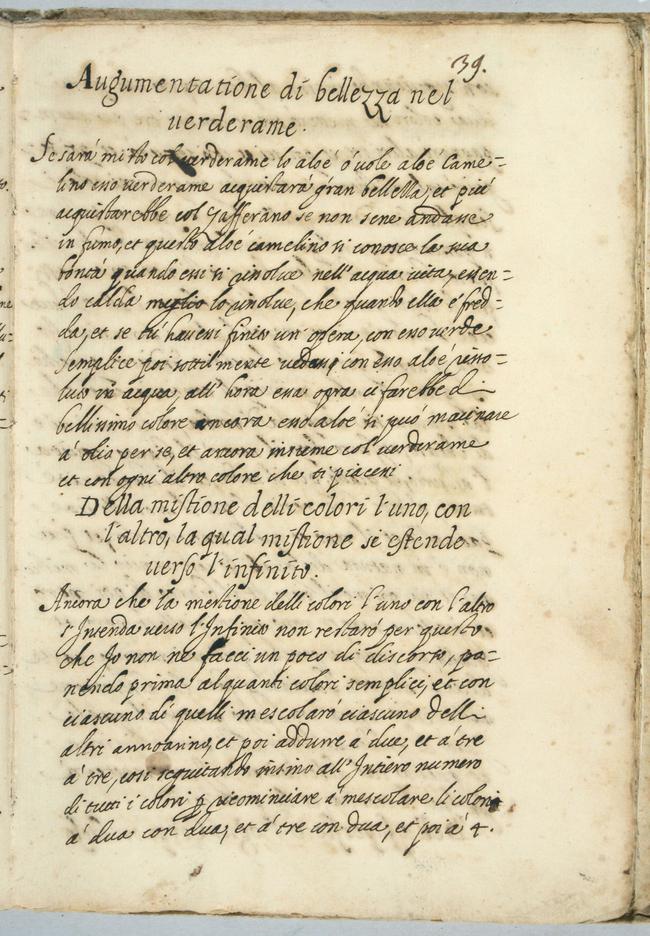 39.
Augumentatione di bellezza nel
verderame.
Se sará misto col verderame lo aloé ó vole aloé Came=
lino esso verderame acquistará gran bellezza, et piú
acquistarebbe col Zafferano se non sene andasse
in fumo, et questo aloé camelino si conosce la sua
bontá quando essi si risolve nell'acqua vita, essen=
do calda meglio lo risolve, che quando ella é fred=
da, et se tú havessi finito un'opera, con esso verde
semplice poi sottilmente con esso aloé risso=
luto in acqua, all'hora essa opra si farebbe di
bellissimo colore ancora esso aloé si puó macinare
á olio per se, et ancora insieme col verderame
et con ogni altro colore che ti piacessi.
Della mistione delli colori l'uno, con
l'altro, la qual mistione si estende
verso l'infinito.
Ancora che la mestione delli colori l'uno con l'altro
s'Intenda verso l'Infinito non restaró per questo
che Jo non ne facci un poco di discorso, po=
nendo prima alquanti colori semplici, et con
ciascuno di quelli mescolaró ciascuno delli
altri á due, et á tre
á tre, cosi seguitando insino all'Intiero numero
di tutti i colori ricominciare á mescolare li colori
á dua con dua, et á tre con dua, et poi á 4.